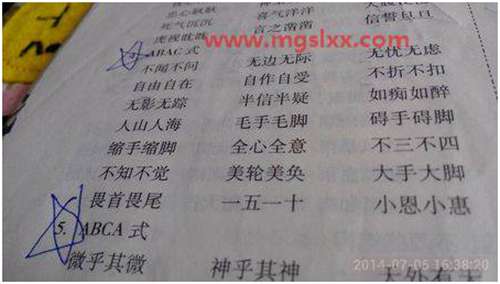 忠心耿耿 喜气洋洋
死气沉沉 言之凿凿 信誓旦旦
虎视眈眈
www.mgslxx.com
ABAC 式
不闻不问 无边无际 无忧无虑
自由自在 自作自受 不折不扣
无影无踪 半信半疑 如痴如醉
人山人海 毛手毛脚 碍手碍脚
缩手缩脚 全心全意 不三不四
不知不觉 美轮美奂 大手大脚
畏首畏尾 一五一十 小恩小惠
5. ABCA 式
微乎其微 神乎其神 天外有天
2014-07-05 16:38:20